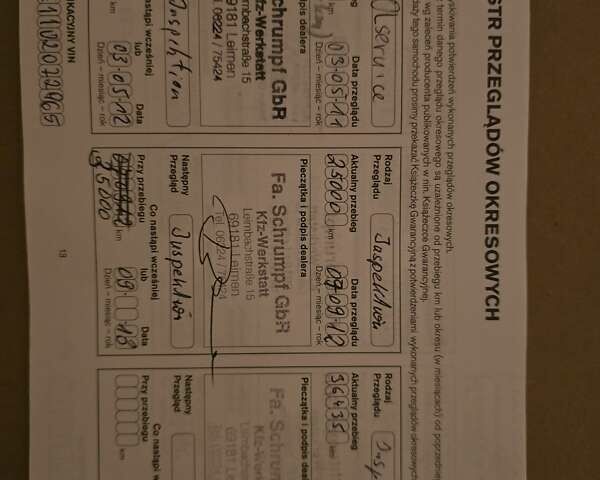 STR PRZEGLĄDÓW OKRESOWYCH
yskiwania potwierdzeń wykonanych przeglądów okresowych.
termin danego przeglądu okresowego są uzależnione od przebiegu km lub okresu (w miesiącach) od poprzednie
wg zaleceń producenta publikowanych w nin. Książeczce Gwarancyjnej.
aży tego samochodu prosimy przekazać Książeczkę Gwarancyjną z potwierdzeniami wykonanych przeglądów okresowych
Ölservice
eg
Data przeglądu
km
03-05-11
Dzień – miesiąc – rok
odpis dealera
Schrumpf GbR
Kfz-Werkstatt
mbachstraße 15
69181 Leimen
06224 / 75424
Inspektion
nastąpi wcześniej
lub
Data
km
03-05-12
Dzień – miesiąc – rok
IKACYJNY VIN
Rodzaj
Przeglądu
Inspektion
Aktualny przebieg
Data przeglądu
25000
km
07 09 12
Dzień – miesiąc – rok
Pieczątka i podpis dealera
Fa. Schrumpf GbR
Kfz-Werkstatt
Leimbachstraße 15
69181 Leimen
Tel. 06224 / 75424
Następny
Przegląd
Inspektion
Co nastąpi wcześniej
Przy przebiegu
lub
Data
km
35000
Dzień – miesiąc – rok
13
Rodzaj
Przeglądu
Insp
Aktualny przebieg
36435
km
Pieczątka i podpis deal
Fa. Schrum
Kfz-Werk
Leimbach
69181 Lei
Następny
Przegląd
Co nastąpi w
Przy przebiegu
km